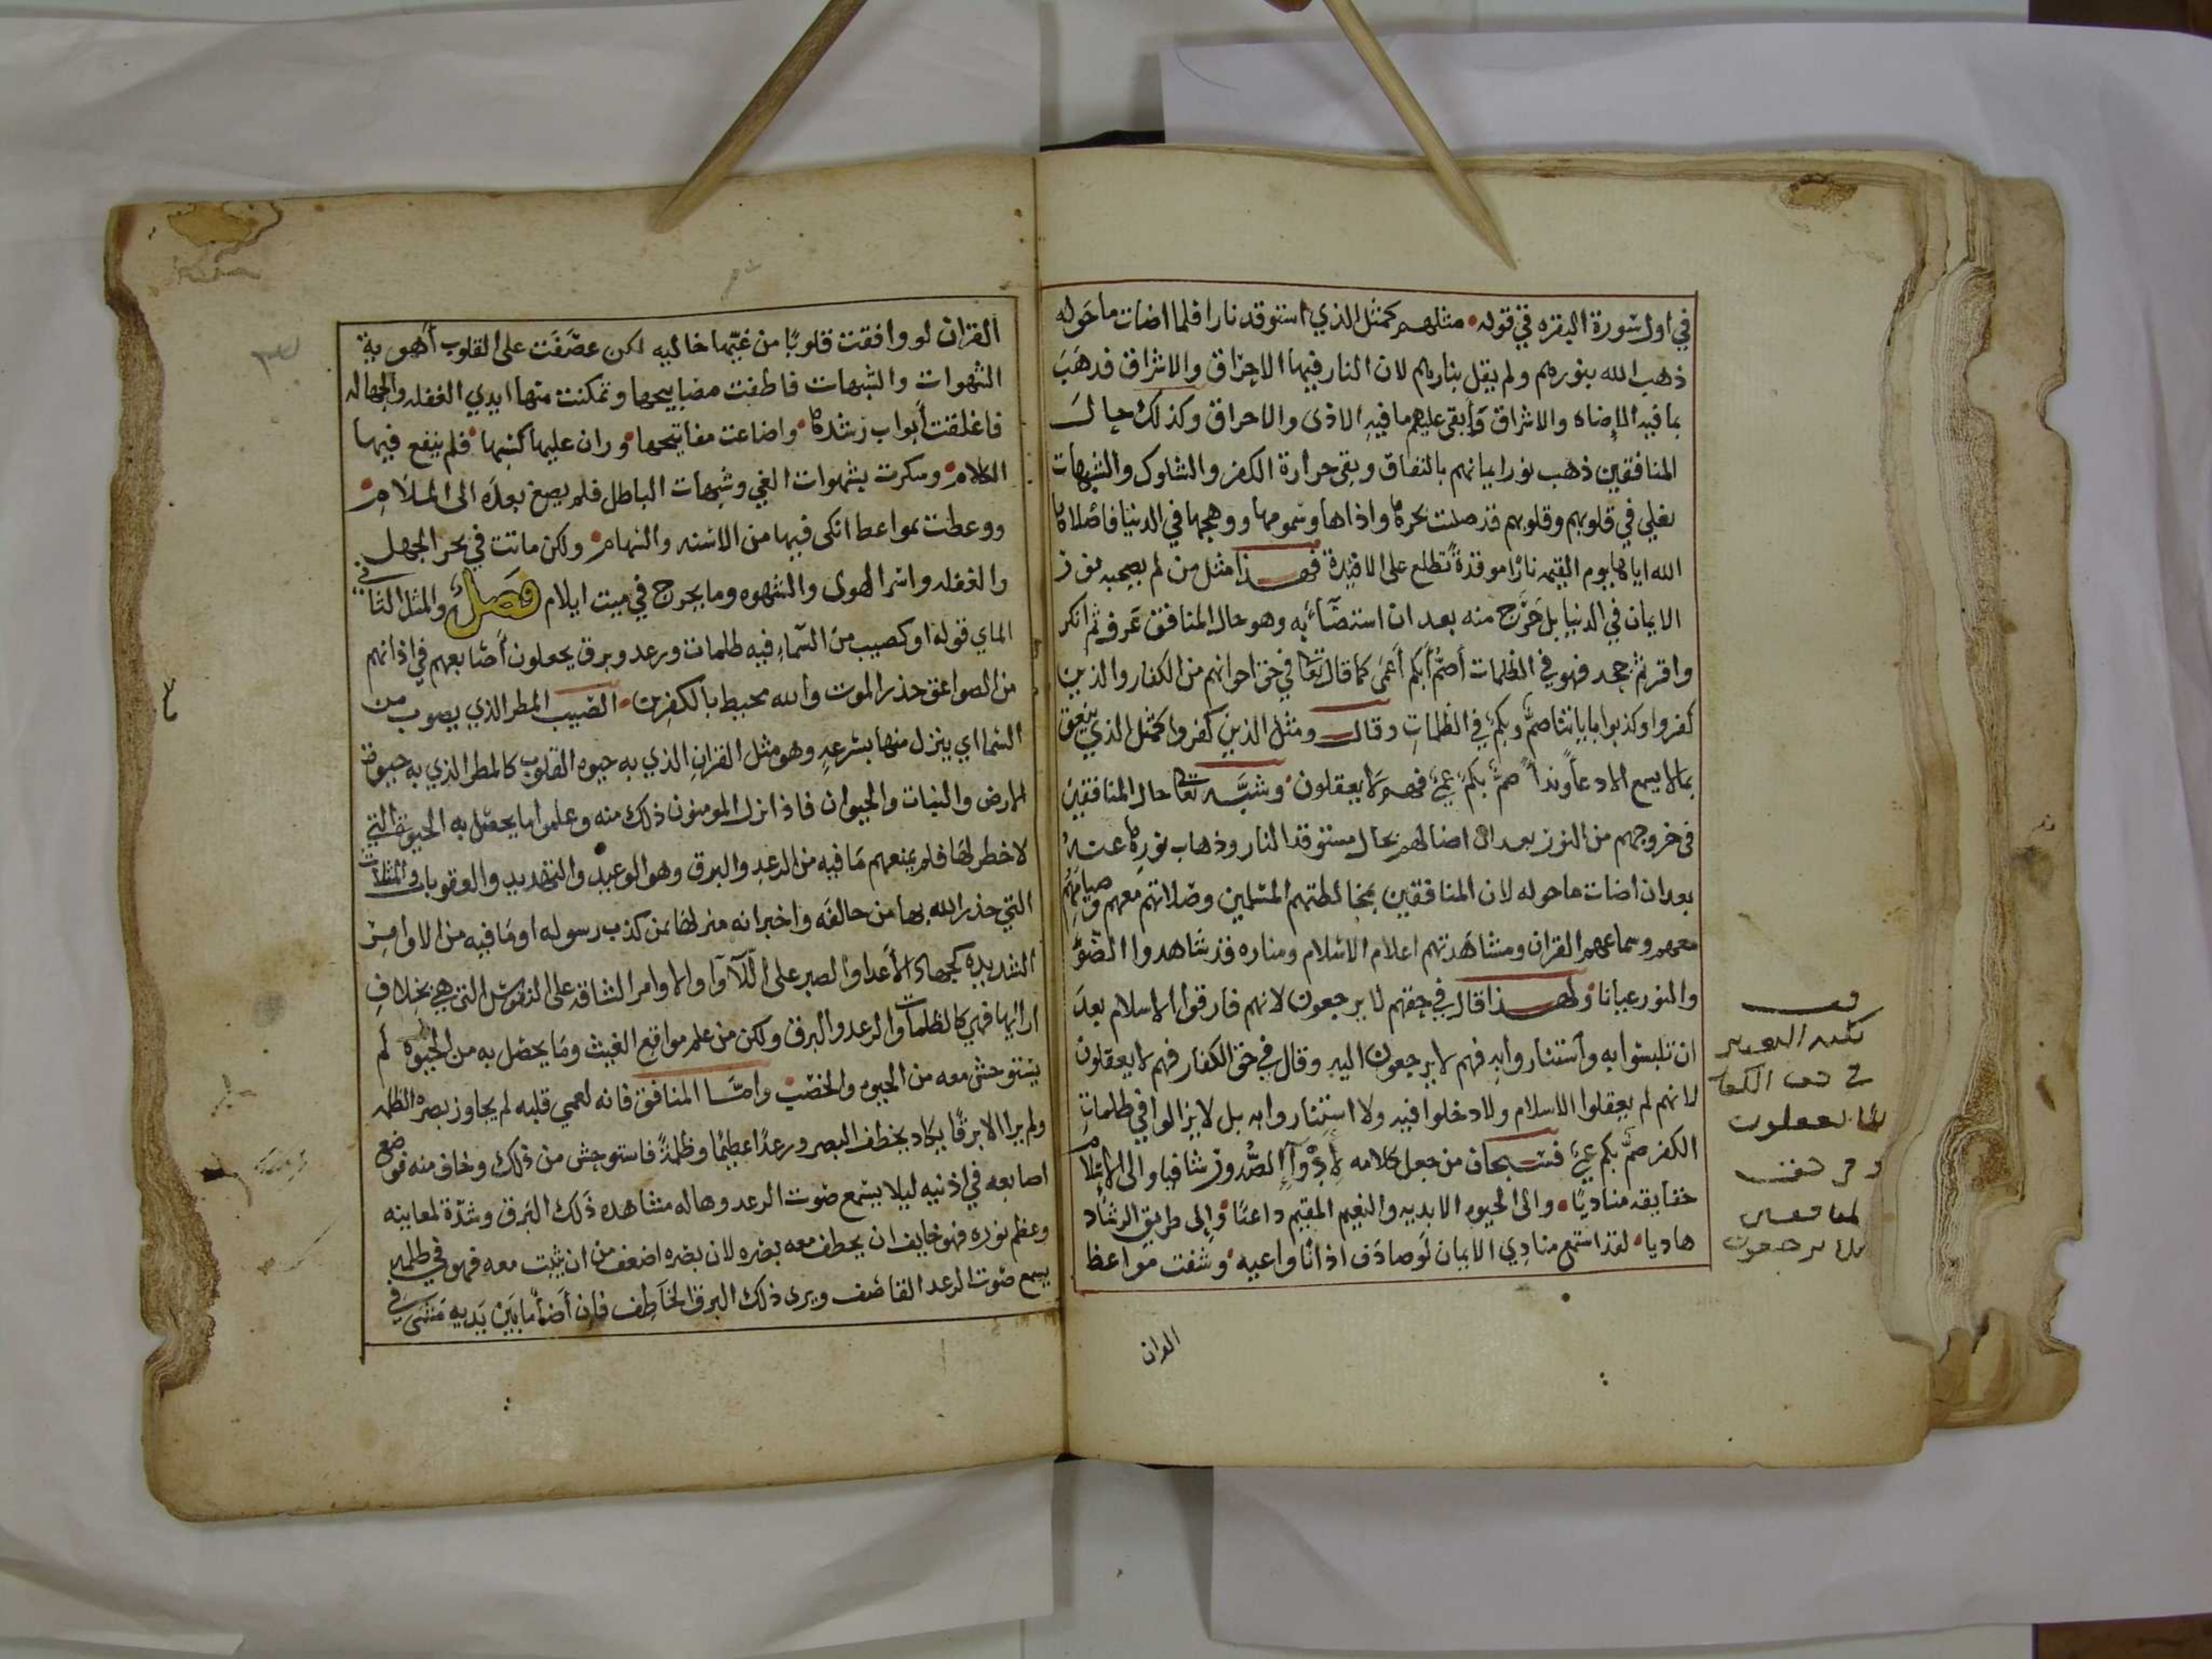 في اول سورة البقره في قوله مثلهم كمثل الذي استوقد نارا فلما اضات ما حوله
ذهب الله بنورهم ولم يقل بنارهم لان النار فيها الاحراق والاشراق فذهب
بما فيه الإضاه والاشراق وأبقى عليهم ما فيه الاذى والاحراق وكذلك حال
المنافقين ذهب نور ايمانهم بالنفاق وبقى حرارة الكفر والشكوك والشبهات
يغلي في قلوبهم وقلوبهم قد صليت بحرها واذاها وسمومها ووهجها في الدنيا فاصلاها
الله اياها يوم القيمه نارا موقدة تطلع على الافيدة فهذا مثل من لم يصحبه نور
الايمان في الدنيا بل خرج منه بعد ان استضآء به وهو حال المنافق عرف ثم انكر
واقر ثم جحد فهو في الظلمات أصم أبكم أعمى كما قال تعالى في حق اخوانهم من الكفار والذين
كفروا وكذبوا باياتنا صم وبكم في الظلمات وقال ومثل الذين كفروا كمثل الذي ينعق
بما لا يسمع الا دعآ وندآ صم بكم عمي فهم لا يعقلون وشبه تعالى حال المنافقين
في خروجهم من النور بعد ان اضا لهم بحال مستوقد النار وذهاب نورها عنه
بعد ان اضات ما حوله لان المنافقين بمخالطتهم المسلمين وصلاتهم معهم وصيامهم
معهم وسماعهم القران ومشاهدتهم اعلام الاسلام ومناره قد شاهدوا الضو
والنور عيانا ولهذا قال في حقهم لا يرجعون لانهم فارقوا الاسلام بعد
ان تلبسوا به واستناروا به فهم لا يرجعون اليه وقال في حق الكفار فهم لا يعقلون
لانهم لم يعقلوا الاسلام ولا دخلوا فيه ولا استناروا به بل لا يزالوا في ظلمات
الكفر صم بكم عمي فسبحان من جعل كلامه لأدوآء الصدور شافيا والى الاسلام
حقايقه مناديا والى الحيوه الابديه والنعيم المقيم داعيا والى طريق الرشاد
هاديا لقد اسمع منادي الايمان لو صادف اذانا واعيه وشفت مواعظ
القران
في حق الكفار
لا يعقلون
وفي حق
المنافقين
لا يرجعون
القران لو وافقت قلوبا من غيها خاليه لكن عصفت على القلوب أهوية
الشهوات والشبهات فاطفت مصابيحها وتمكنت منها ايدي الغفله والجهاله
فاغلقت أبواب رشدها واضاعت مفاتيحها وران عليها كسبها فلم ينفع فيها
الكلام وسكرت بشهوات الغي وشبهات الباطل فلم يصغ بعده الى الملام
ووعظت بمواعظ انكى فيها من الاسنه والسهام ولكن ماتت في بحر الجهل
والغفله واسر الهوى والشهوه وما يجرح في ميت ايلام فصل والمثل الثاني
الماي قوله او كصيب من السماء فيه ظلمات ورعد وبرق يجعلون أصابعهم في اذانهم
من الصواعق حذر الموت والله محيط بالكفرين الصيب المطر الذي يصوب من
السما اي ينزل منها بسرعه وهو مثل القران الذي به حيوه القلوب كالمطر الذي به حيوة
الارض والنبات والحيوان فاذا نزل المومنون ذلك منه وعلموا ما يحصل به الحيوة التي
لا خطر لها فلم يمنعهم ما فيه من الرعد والبرق وهو الوعيد والتهديد والعقوبات والمثلات
التي حذر الله بها من خالفه واخبر انه منزلها بمن كذب رسوله او ما فيه من الاوامر
الشديده كجهاد الأعدا والصبر على اللآوا والاوامر الشاقه على النفوس التي هي بخلاف
ارائها فهي كالظلمات والرعد والبرق ولكن من علم مواقع الغيث وما يحصل به من الحيوه لم
يستوحش معه من الحيوه والخصب وامّا المنافق فانه لعمي قلبه لم يجاوز بصره الظلمه
ولم ير الا برقا يكاد يخطف البصر ورعدا عظيما وظلمة فاستوحش من ذلك وخاف منه فوضع
اصابعه في اذنيه ليلا يسمع صوت الرعد وهاله مشاهده ذلك البرق وشدة لمعانه
وعظم نوره فهو خايف ان يخطف معه بصره لان بصره اضعف من ان يثبت معه فهو في ظلمه
يسمع صوت الرعد القاصف ويرى ذلك البرق الخاطف فان أضآ ما بين يديه مشى في